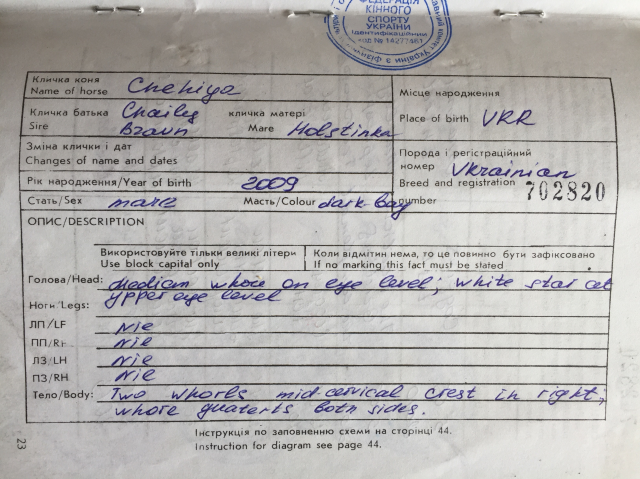 ФЕДЕРАЦІЯ
КІННОГО
СПОРТУ
УКРАЇНИ
Кличка коня
Name of horse Chehiya
Місце народження
Place of birth VRR
Кличка батька Chailey кличка матері
Sire Braun Mare Holstinka
Зміна клички і дат
Changes of name and dates
Порода і реґістраційний
номер Vkrainian
Breed and registration 702820
number
Рік народження/Year of birth 2009
Стать/Sex mare Масть/Colour dark-bay
ОПИС/DESCRIPTION
Використовуйте тільки великі літери
Use block capital only
Коли відмітин нема, то це повинно бути зафіксовано
If no marking this fact must be stated
Голова/Head: Median whore on eye level; white star at
Ноги/Legs: ypper eye level
ЛП/LF Nie
ПП/RF Nie
ЛЗ/LH Nie
ПЗ/RH Nie
Тело/Body: Two whorls mid-cervical crest in right;
whore guaterts both sides.
Інструкція по заповненню схеми на сторінці 44.
Instruction for diagram see page 44.
23